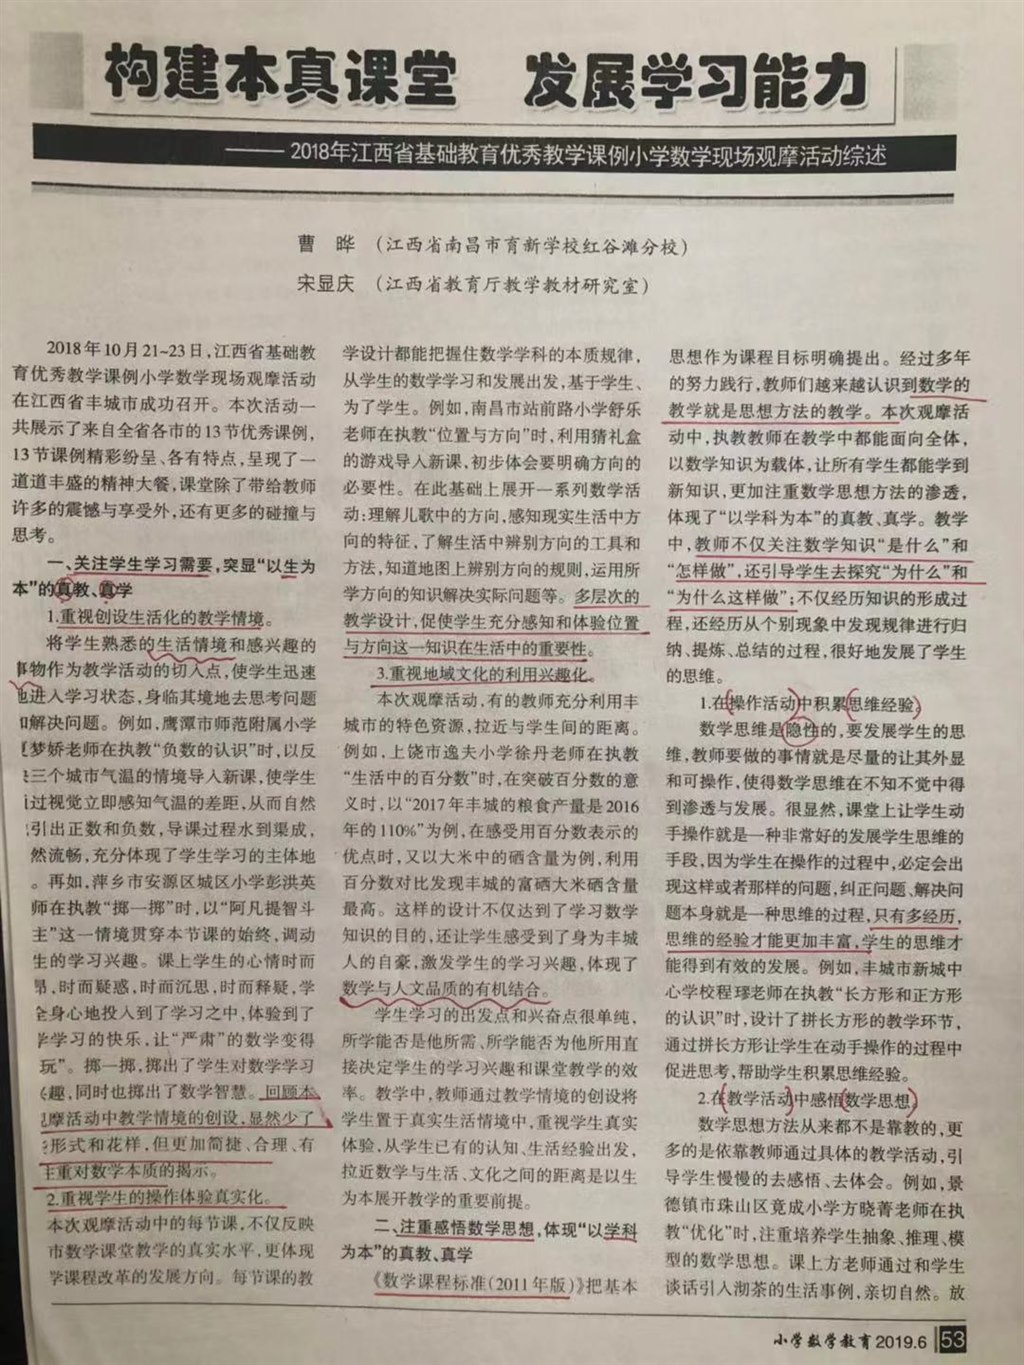 构建本真课堂 发展学习能力
——2018年江西省基础教育优秀教学课例小学数学现场观摩活动综述
曹 晔 (江西省南昌市育新学校红谷滩分校)
宋显庆 (江西省教育厅教学教材研究室)
2018年10月21~23日,江西省基础教
育优秀教学课例小学数学现场观摩活动
在江西省丰城市成功召开。本次活动一
共展示了来自全省各市的13节优秀课例,
13节课例精彩纷呈、各有特点,呈现了一
道道丰盛的精神大餐,课堂除了带给教师
许多的震憾与享受外,还有更多的碰撞与
思考。
一、关注学生学习需要,突显“以生为
本”的真教、真学
1.重视创设生活化的教学情境。
将学生熟悉的生活情境和感兴趣的
事物作为教学活动的切入点,使学生迅速
地进入学习状态,身临其境地去思考问题
和解决问题。例如,鹰潭市师范附属小学
夏梦娇老师在执教“负数的认识”时,以反
三个城市气温的情境导入新课,使学生
过视觉立即感知气温的差距,从而自然
引出正数和负数,导课过程水到渠成,
然流畅,充分体现了学生学习的主体地
。再如,萍乡市安源区城区小学彭洪英
师在执教“掷一掷”时,以“阿凡提智斗
主”这一情境贯穿本节课的始终,调动
生的学习兴趣。课上学生的心情时而
昂,时而疑惑,时而沉思,时而释疑,学
全身心地投入到了学习之中,体验到了
学学习的快乐,让“严肃”的数学变得
玩”。掷一掷,掷出了学生对数学学习
趣,同时也掷出了数学智慧。回顾本
观摩活动中教学情境的创设,显然少了
形式和花样,但更加简捷、合理、有
注重对数学本质的揭示。
2.重视学生的操作体验真实化。
本次观摩活动中的每节课,不仅反映
市数学课堂教学的真实水平,更体现
学课程改革的发展方向。每节课的教
学设计都能把握住数学学科的本质规律,
从学生的数学学习和发展出发,基于学生、
为了学生。例如,南昌市站前路小学舒乐
老师在执教“位置与方向”时,利用猜礼盒
的游戏导入新课,初步体会要明确方向的
必要性。在此基础上展开一系列数学活
动:理解儿歌中的方向,感知现实生活中方
向的特征,了解生活中辨别方向的工具和
方法,知道地图上辨别方向的规则,运用所
学方向的知识解决实际问题等。多层次的
教学设计,促使学生充分感知和体验位置
与方向这一知识在生活中的重要性。
3.重视地域文化的利用兴趣化。
本次观摩活动,有的教师充分利用丰
城市的特色资源,拉近与学生间的距离。
例如,上饶市逸夫小学徐丹老师在执教
“生活中的百分数”时,在突破百分数的意
义时,以“2017年丰城的粮食产量是2016
年的110%”为例,在感受用百分数表示的
优点时,又以大米中的硒含量为例,利用
百分数对比发现丰城的富硒大米硒含量
最高。这样的设计不仅达到了学习数学
知识的目的,还让学生感受到了身为丰城
人的自豪,激发学生的学习兴趣,体现了
数学与人文品质的有机结合。
学生学习的出发点和兴奋点很单纯,
所学能否是他所需、所学能否为他所用直
接决定学生的学习兴趣和课堂教学的效
率。教学中,教师通过教学情境的创设将
学生置于真实生活情境中,重视学生真实
体验,从学生已有的认知、生活经验出发,
拉近数学与生活、文化之间的距离是以生
为本展开教学的重要前提。
二、注重感悟数学思想,体现“以学科
为本”的真教、真学
《数学课程标准(2011年版)》把基本
思想作为课程目标明确提出。经过多年
的努力践行,教师们越来越认识到数学的
教学就是思想方法的教学。本次观摩活
动中,执教教师在教学中都能面向全体,
以数学知识为载体,让所有学生都能学到
新知识,更加注重数学思想方法的渗透,
体现了“以学科为本”的真教、真学。教学
中,教师不仅关注数学知识“是什么”和
“怎样做”,还引导学生去探究“为什么”和
“为什么这样做”;不仅经历知识的形成过
程,还经历从个别现象中发现规律进行归
纳、提炼、总结的过程,很好地发展了学生
的思维。
1.在操作活动中积累思维经验。
数学思维是隐性的,要发展学生的思
维,教师要做的事情就是尽量的让其外显
和可操作,使得数学思维在不知不觉中得
到渗透与发展。很显然,课堂上让学生动
手操作就是一种非常好的发展学生思维的
手段,因为学生在操作的过程中,必定会出
现这样或者那样的问题,纠正问题、解决问
题本身就是一种思维的过程,只有多经历,
思维的经验才能更加丰富,学生的思维才
能得到有效的发展。例如,丰城市新城中
心学校程璆老师在执教“长方形和正方形
的认识”时,设计了拼长方形的教学环节,
通过拼长方形让学生在动手操作的过程中
促进思考,帮助学生积累思维经验。
2.在教学活动中感悟数学思想。
数学思想方法从来都不是靠教的,更
多的是依靠教师通过具体的教学活动,引
导学生慢慢的去感悟、去体会。例如,景
德镇市珠山区竟成小学方晓菁老师在执
教“优化”时,注重培养学生抽象、推理、模
型的数学思想。课上方老师通过和学生
谈话引入沏茶的生活事例,亲切自然。放
小学数学教育 2019.6 53